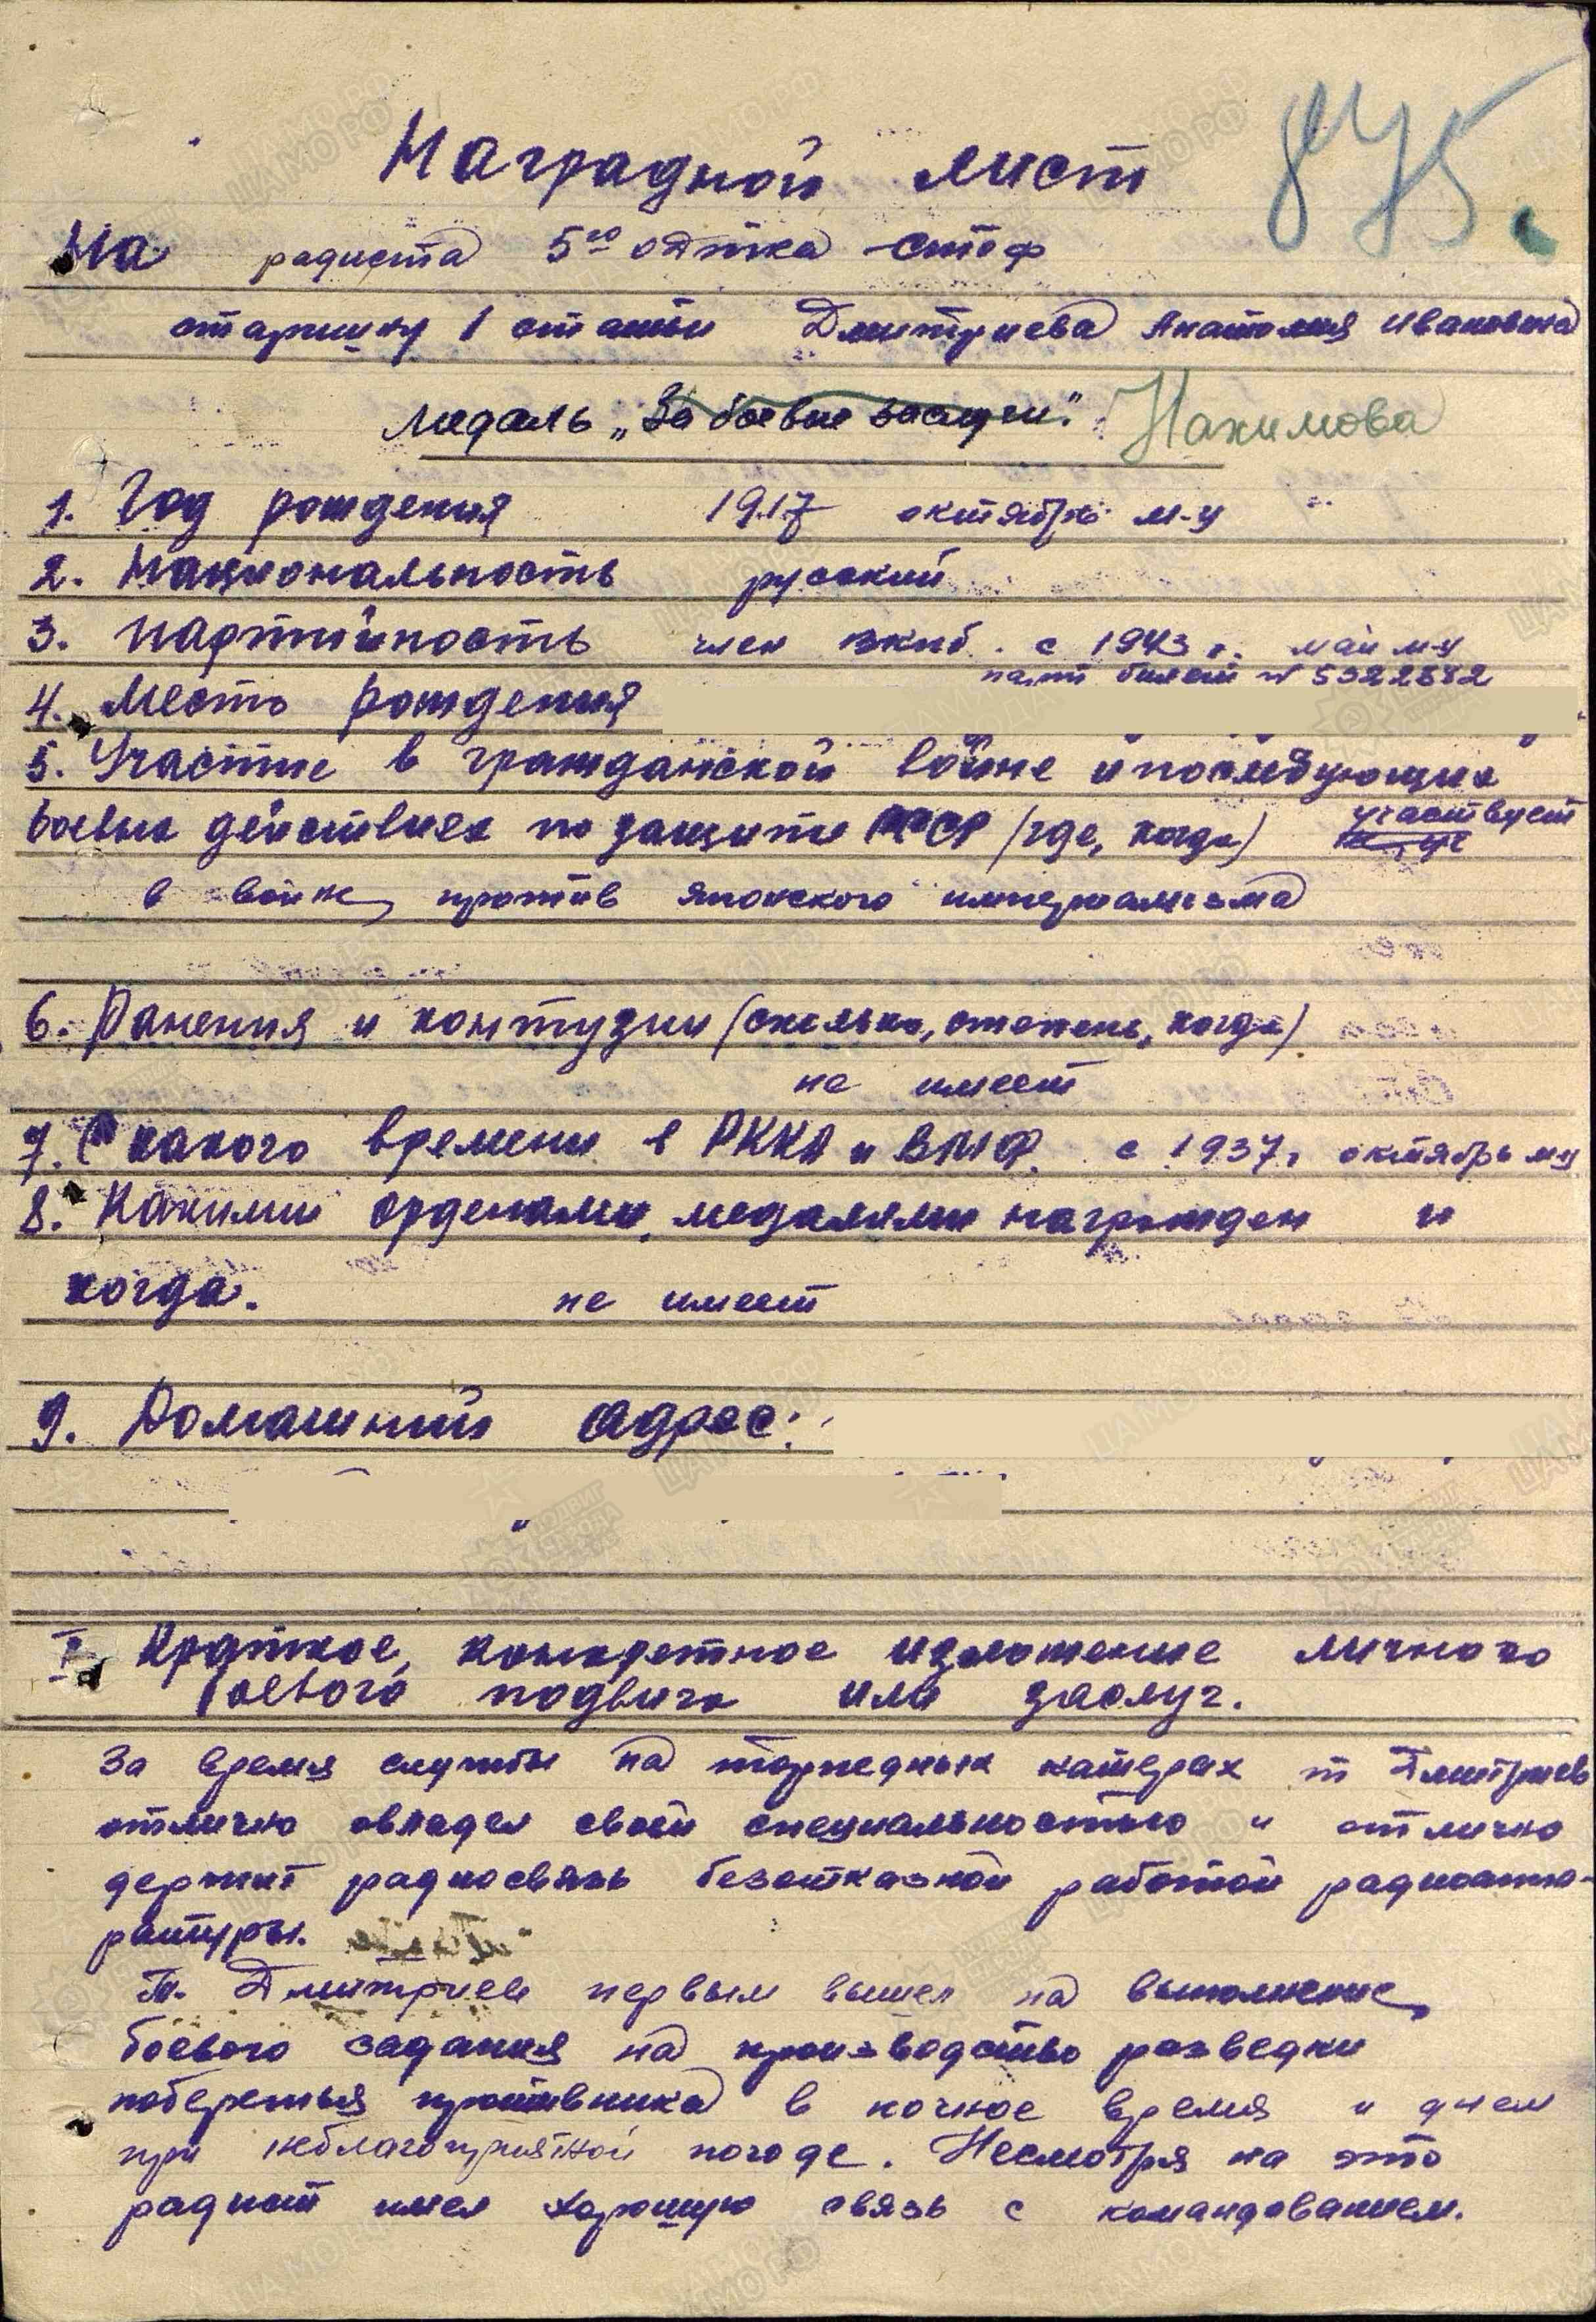 875.
Наградной лист
На радиста 5го одтка стоф
старшину 1 статьи Дмитриева Анатолия Ивановича
медаль „За боевые заслуги". Нахимова
1. Год рождения 1917 октябрь м-ц
2. Национальность русский
3. Партийность член вкпб. с 1943 г. май м-ц
парт билет №
4. Место рождения
5. Участие в гражданской войне и последующих
боевых действиях по защите СССР (где, когда) участвует
в войне против японского империализма
6. Ранения и контузии (сколько, степень, когда)
не имеет
7. С какого времени в РККА и ВМФ. с 1937г. октябрь м-ц
8. Какими орденами, медалями награжден и
когда. не имеет
9. Домашний адрес:
I. Краткое, конкретное изложение личного
боевого подвига или заслуг.
За время службы на торпедных катерах т Дмитриев
отлично овладел своей специальностью и отлично
держит радиосвязь безотказной работой радиоаппа-
ратуры.
Т. Дмитриев первым вышел на выполнение
боевого задания на производство разведки
побережья противника в ночное время и днем
при неблагоприятной погоде. Несмотря на это
радист имел хорошую связь с командованием.